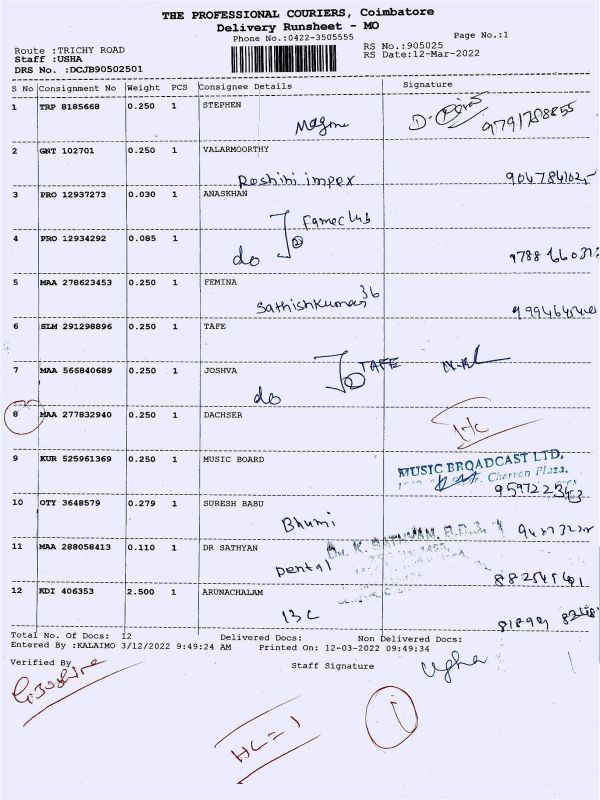 THE PROFESSIONAL COURIERS, Coimbatore
Delivery Runsheet - MO
Phone No.:0422-3505555
Page No.:1
Route :TRICHY ROAD
RS No.:905025
Staff :USHA
RS Date:12-Mar-2022
DRS No. :DCJB90502501
S No Consignment No Weight PCS Consignee Details Signature
1 TRP 8185668 0.250 1 STEPHEN
9791788855
2 GNT 102701 0.250 1 VALARMOORTHY
Roshini impex
3 PRO 12937273 0.030 1 ANASKHAN
Fameclub
4 PRO 12934292 0.085 1
do
5 MAA 278623453 0.250 1 FEMINA
Sathishkumar 36
6 SLM 291298896 0.250 1 TAFE
TAFE
7 MAA 566840689 0.250 1 JOSHVA
do
8 MAA 277832940 0.250 1 DACHSER
H/c
9 KUR 525961369 0.250 1 MUSIC BOARD
MUSIC BROADCAST LTD.
Cherran Plaza,
10 OTY 3648579 0.279 1 SURESH BABU
Bhumi
11 MAA 288058413 0.110 1 DR SATHYAN
Dental
12 KDI 406353 2.500 1 ARUNACHALAM
13 C
Total No. Of Docs: 12 Delivered Docs: Non Delivered Docs:
Entered By :KALAIMO 3/12/2022 9:49:24 AM Printed On: 12-03-2022 09:49:34
Verified By Staff Signature
Usha
HC = 1